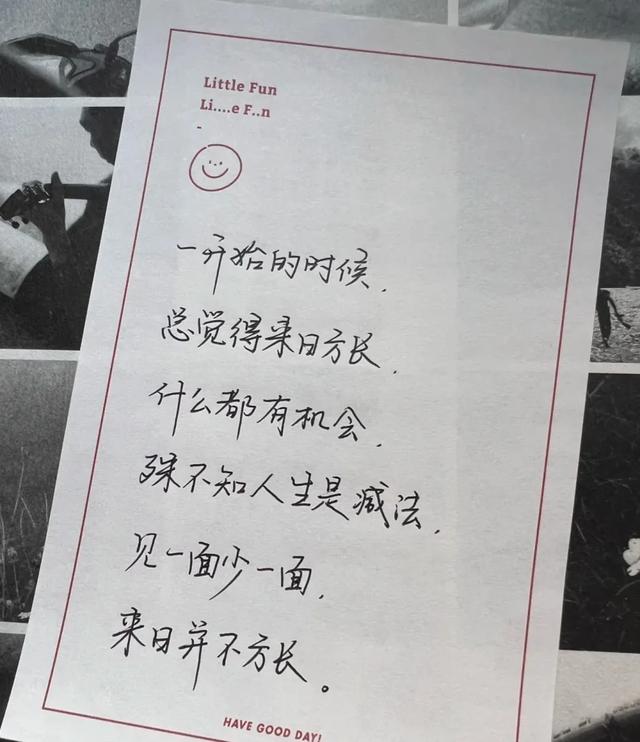 Little Fun
Li....e F..n
-
一开始的时候,
总觉得来日方长,
什么都有机会,
殊不知人生是减法,
见一面少一面,
来日并不方长。
HAVE GOOD DAY!